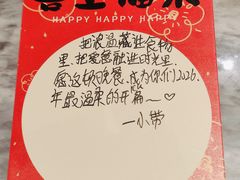 喜上福来
HAPPY HAPPY HAPPY
把浪温藏进食物
里,把爱意融进时光里.
愿这顿晚餐,成为你们2026
年最温柔的开篇~♡
一小带